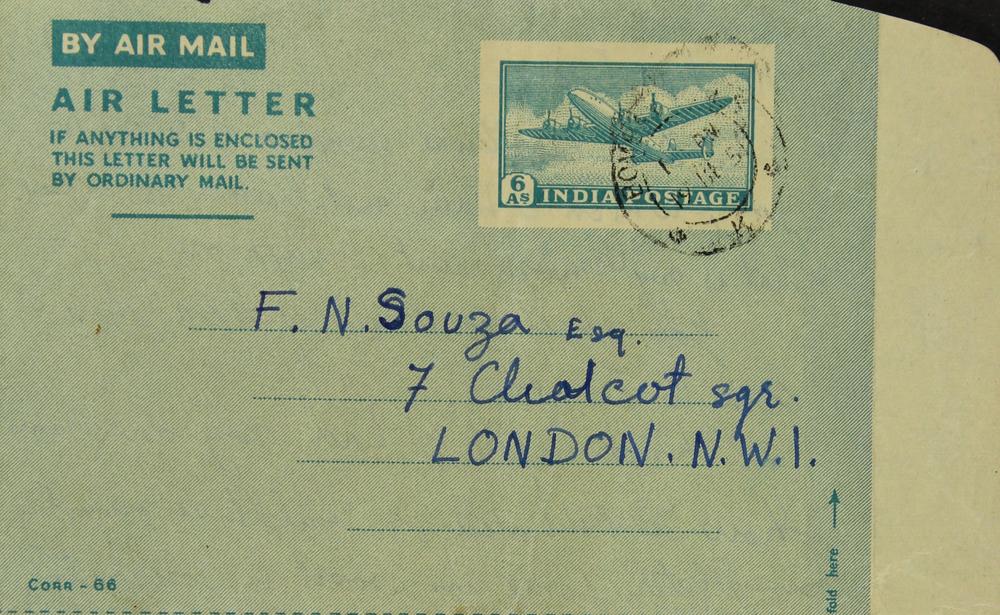 BY AIR MAIL
AIR LETTER
IF ANYTHING IS ENCLOSED
THIS LETTER WILL BE SENT
BY ORDINARY MAIL.
6
AS
INDIA POSTAGE
F. N. Souza Esq.
7 Chalcot sqr.
LONDON. N.W.1.
fold here
CORR - 66